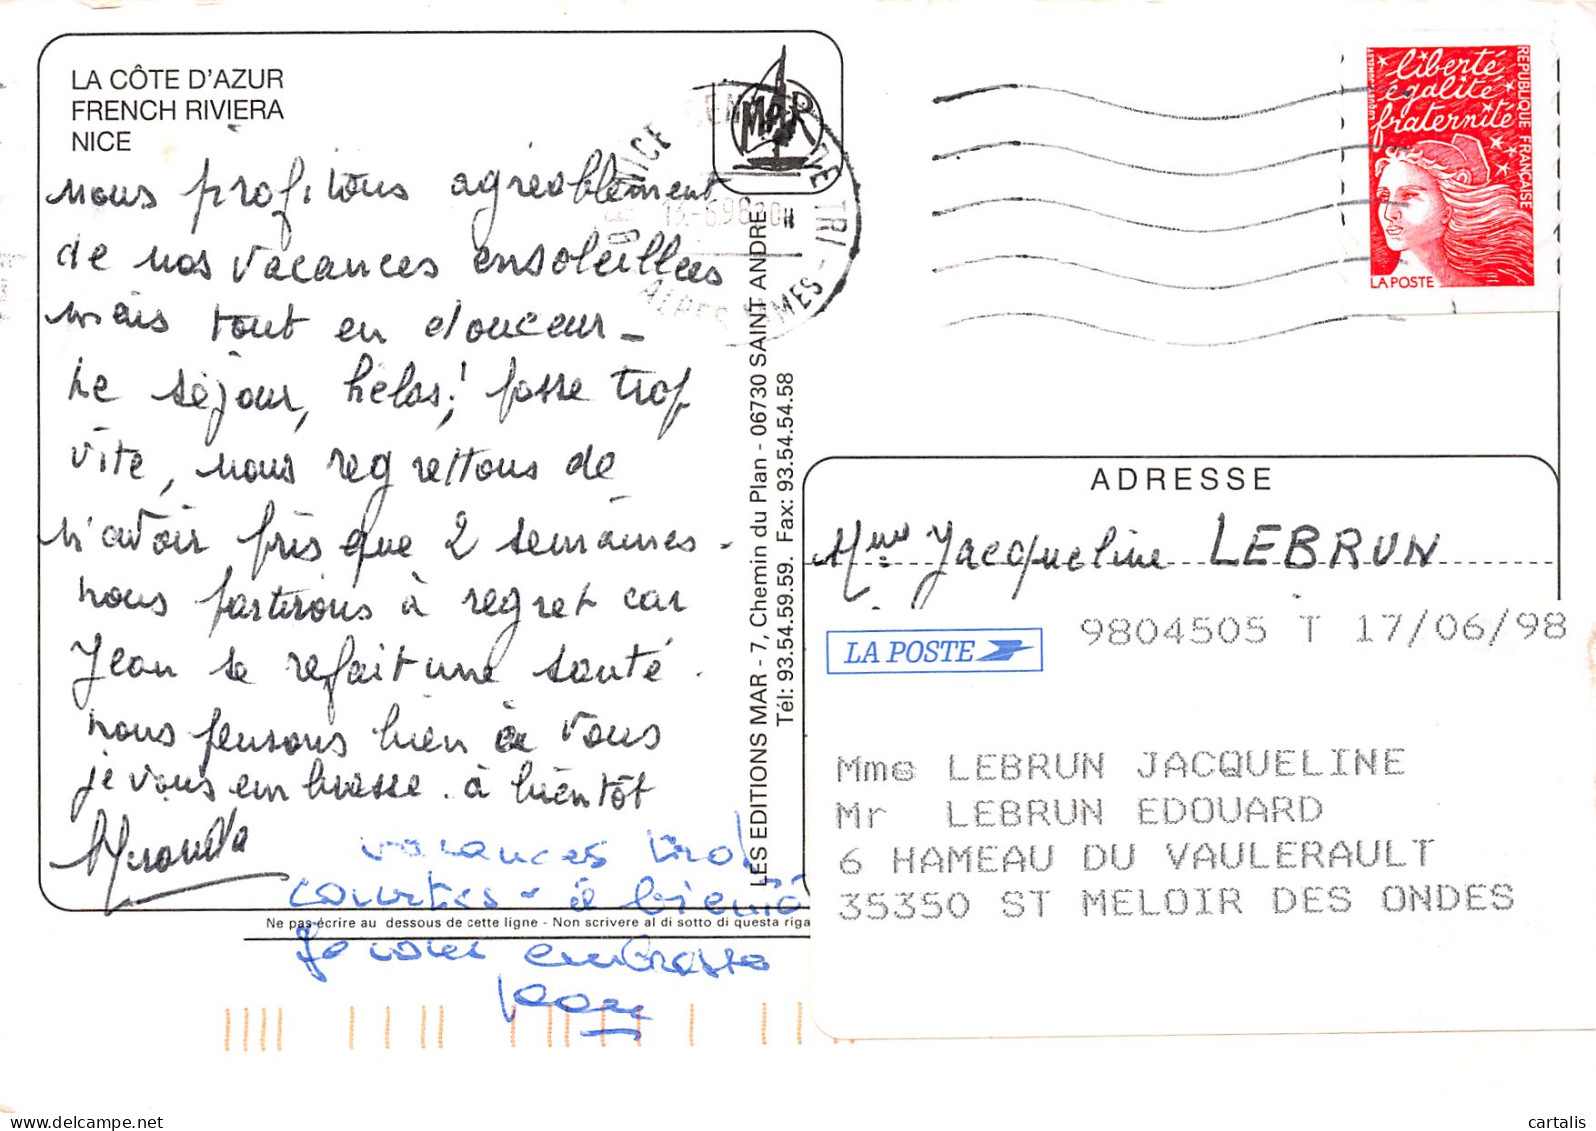 LA CÔTE D'AZUR
FRENCH RIVIERA
NICE
nous profitons agréablement
de nos vacances ensoleillées
mais tout en douceur_
Le séjour, hélas! passe trop
vite, nous regrettons de
n'avoir pris que 2 semaines.
nous partirons à regret car
Jean se refait une santé.
nous pensons bien à vous
je vous embrasse. à bientôt
vacances trop
courtes - à bientô
Je vous embrasse
Jean
Ne pas écrire au dessous de cette ligne - Non scrivere al di sotto di questa riga
LES EDITIONS MAR - 7, Chemin du Plan - 06730 SAINT ANDRE
Tél: 93.54.59.59. Fax: 93.54.54.58
MAR
NICE CEN RE TRI -
13-6-98
ALPES MMES
liberté
égalité
fraternité
REPUBLIQUE FRANÇAISE
LA POSTE
ADRESSE
Mme Jacqueline LEBRUN
LA POSTE
9804505 T 17/06/98
Mme LEBRUN JACQUELINE
Mr LEBRUN EDOUARD
6 HAMEAU DU VAULERAULT
35350 ST MELOIR DES ONDES
delcampe.net
cartalis